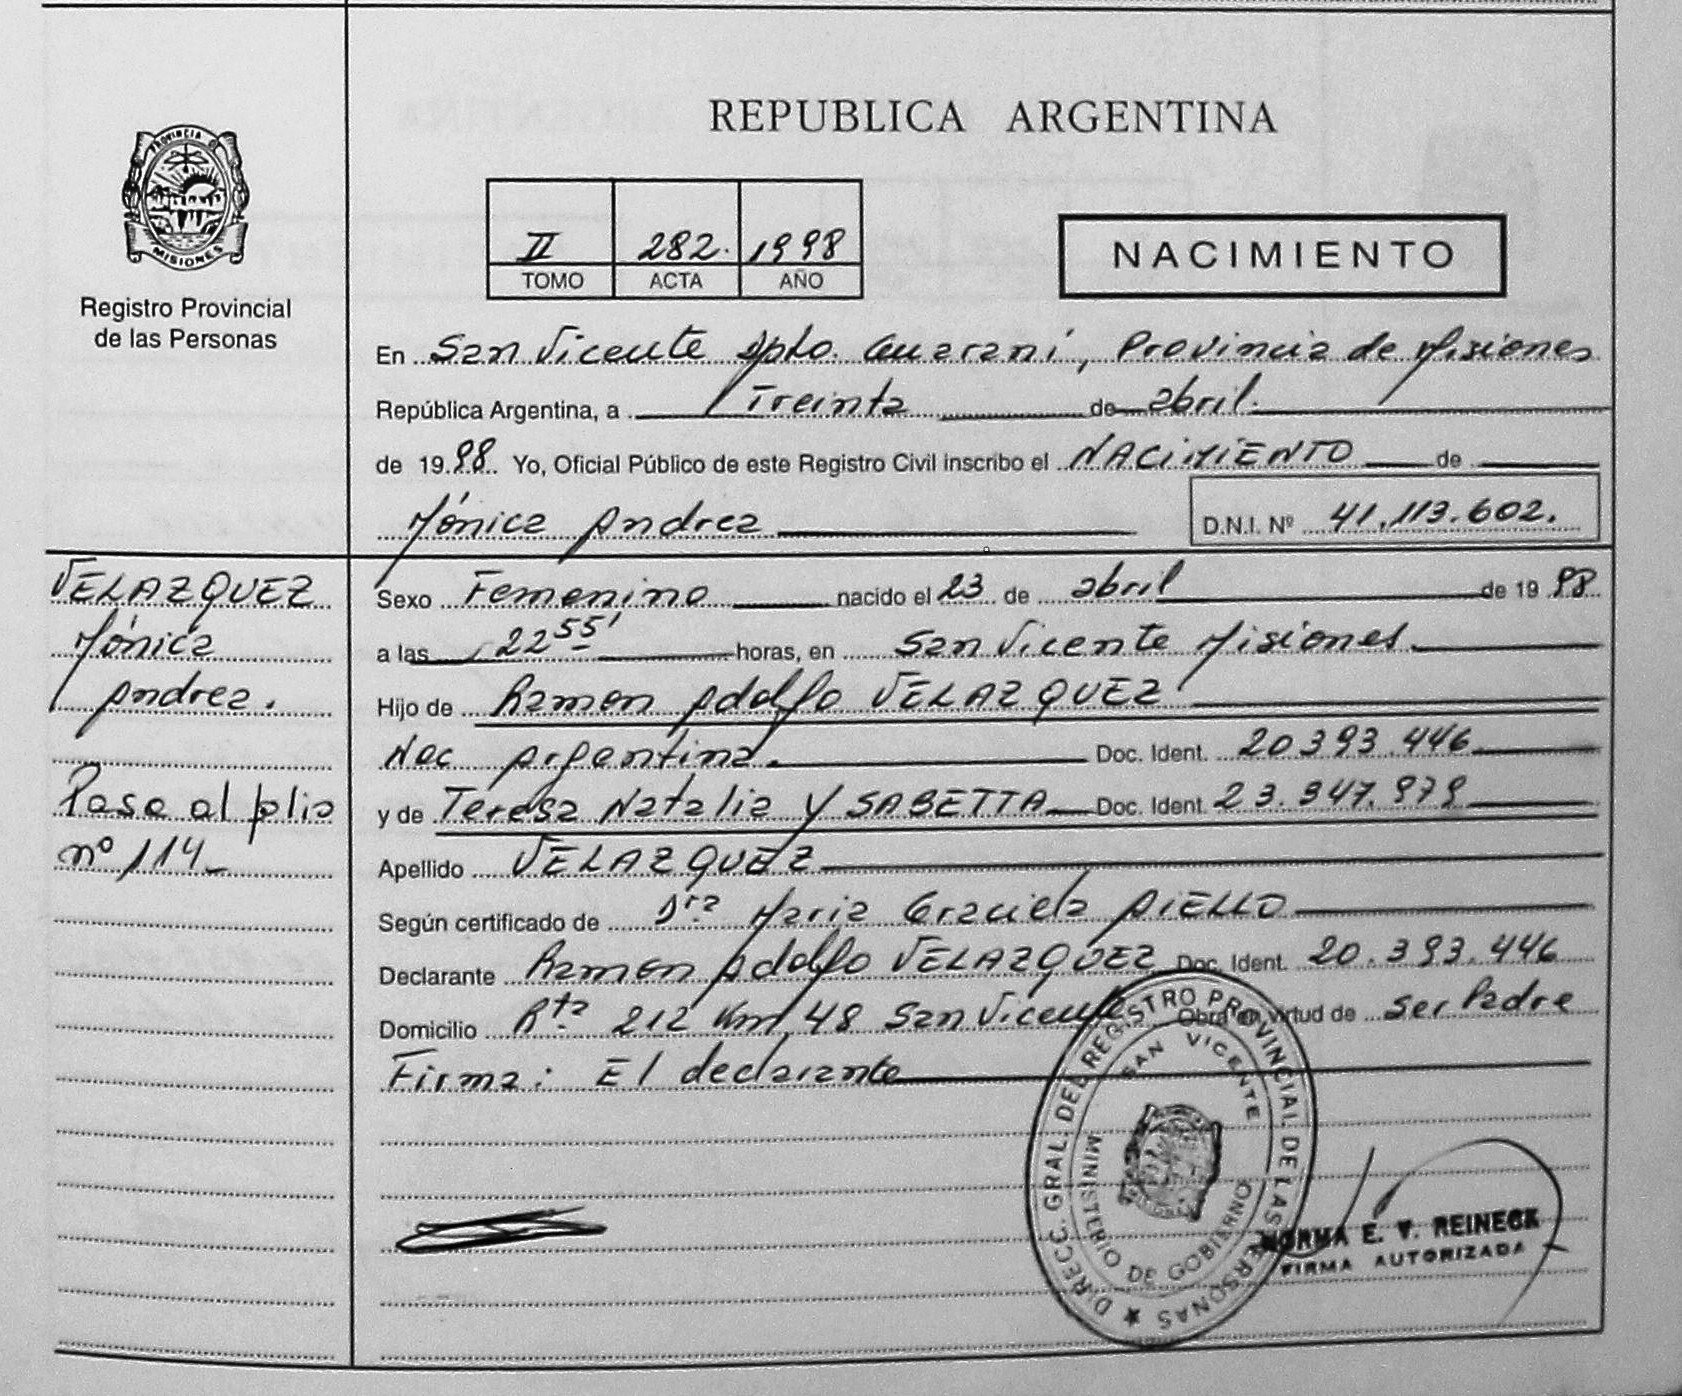 REPUBLICA ARGENTINA
PROVINCIA DE
MISIONES
Registro Provincial
de las Personas
II 282. 1998
TOMO ACTA AÑO
NACIMIENTO
En San Vicente Dpto. Guaraní, Provincia de Misiones
República Argentina, a Treinta de abril.
de 1998. Yo, Oficial Público de este Registro Civil inscribo el NACIMIENTO de
Mónica Andrea D.N.I. Nº 41.113.602.
VELAZQUEZ
Mónica
Andrea.
Pasa al folio
nº 114-
Sexo Femenino nacido el 23 de abril de 1998.
a las 22 55' horas, en San Vicente Misiones.
Hijo de Ramon Adolfo VELAZQUEZ
Nac Argentina. Doc. Ident. 20 393.446
y de Teresa Natalia Y SABETTA Doc. Ident. 23.347.979
Apellido VELAZQUEZ
Según certificado de Dra Maria Graciela AIELLO
Declarante Ramon Adolfo VELAZQUEZ Doc. Ident. 20.393.446
Domicilio Rta 212 Km 48 San Vicente Obra en virtud de ser Padre
Firma: El declarante
DIRECC. GRAL. DEL REGISTRO PROVINCIAL DE LAS PERSONAS
SAN VICENTE
MINISTERIO DE GOBIERNO
NORMA E. V. REINECK
FIRMA AUTORIZADA